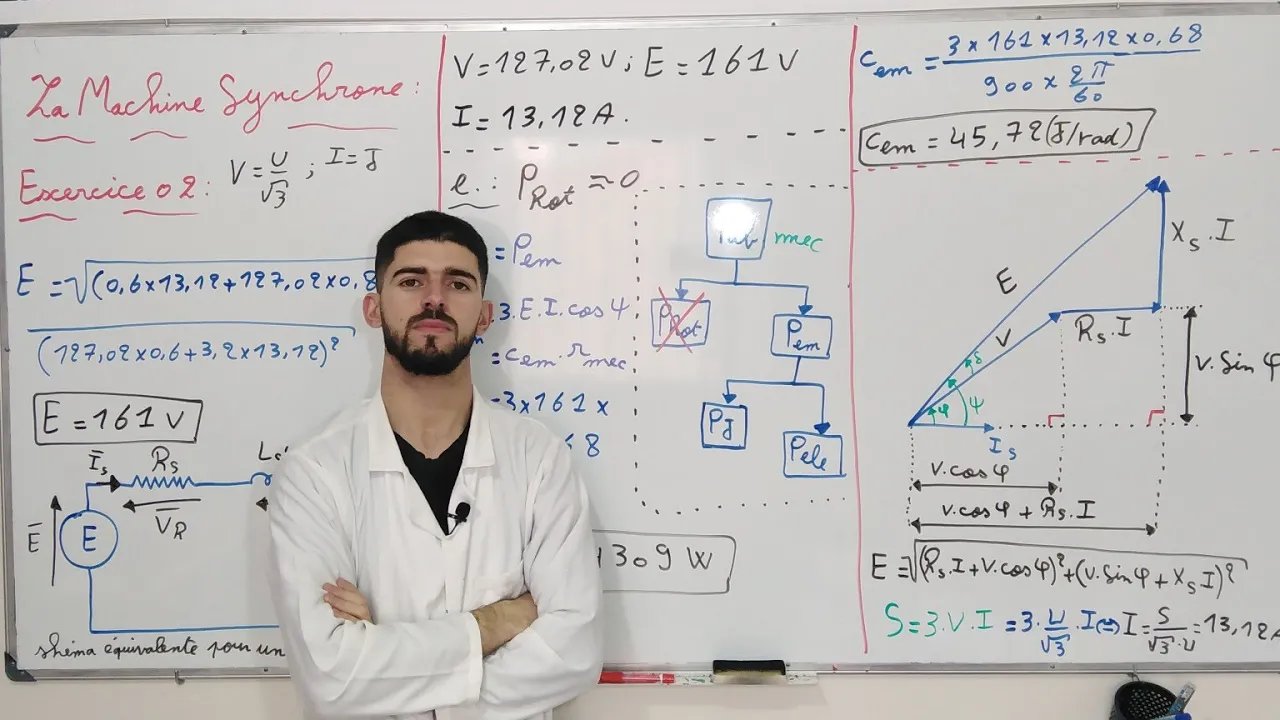 La Machine Synchrone:
Exercice 02: V=U/√3 ; I=J
E=√(0,6x13,12+127,02x0,8
(127,02x0,6+3,2x13,12)²
E=161 V
Īs Rs Ls
Ē E V̄R
shéma équivalente pour un
V=127,02V; E=161V
I=13,12A.
e.: PRot ≈0
=Pem
3.E.I.cosψ
=Cem.Ωmec
=3x161x
68
309 W
mec
PRot
Pem
PJ
Pele
Cem = 3x161x13,12x0,68 / 900x2π/60
Cem=45,72(J/rad)
Xs.I
E
V
Rs.I
V.Sinφ
δ
φ
ψ
Is
V.cosφ
V.cosφ+Rs.I
E=√(Rs.I+V.cosφ)²+(V.Sinφ+XsI)²
S=3.V.I=3.U/√3.I⇔I=S/√3.U=13,12A